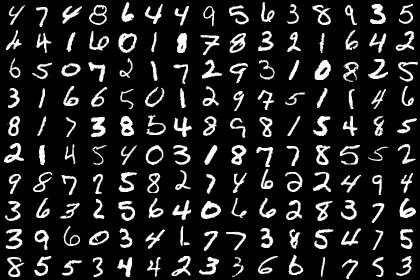 4 7 4 8 6 4 4 9 5 6 3 8 9 3 5
4 4 1 6 0 1 8 7 8 3 2 1 6 4 2
6 5 0 7 2 1 7 2 9 3 1 0 8 2 5
3 1 6 6 5 0 1 2 9 7 5 1 1 4 6
8 1 7 3 8 5 4 8 9 8 1 5 4 8 5
2 1 4 5 4 0 3 1 8 7 7 8 5 5 2
9 8 7 7 5 8 2 7 4 6 2 2 4 9 4
3 6 3 2 5 6 4 0 6 6 2 8 3 7 6
3 9 6 0 3 4 1 7 7 3 8 5 4 7 5
8 5 5 3 4 4 2 3 3 6 6 1 7 5 3